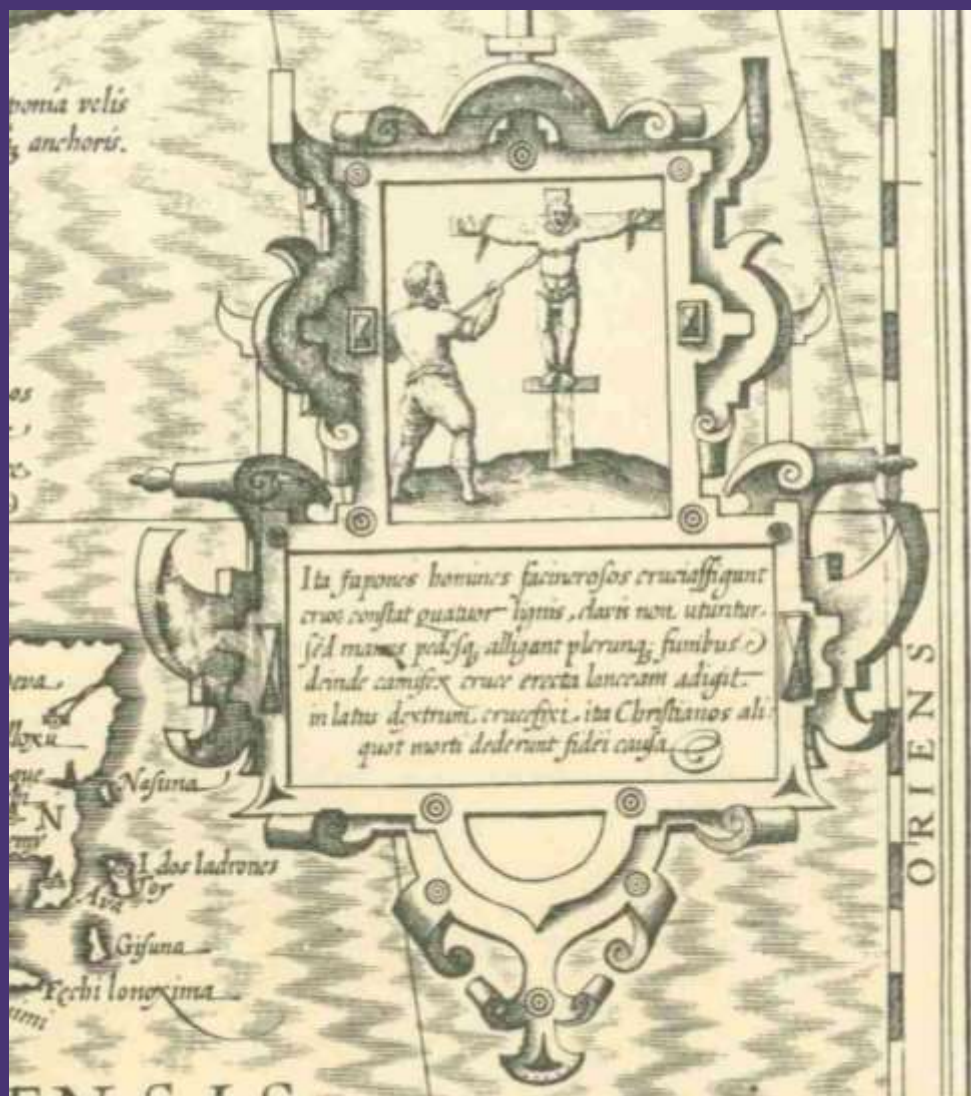 ponia velis
anchoris.
os
Ita Japones homines facinorosos cruciaffigunt
crux constat quatuor lignis, clavis non utuntur.
sed manus pedesq; alligant plerunq; funibus
deinde carnifex cruce erecta lanceam adigit
in latus dextrum crucifixi, ita Christianos ali
quot morti dederunt fidei causa
ORIENS
eva
que
N
Nasuna
I. dos ladrones
Toy
Ava
Gisuna
Fechi longxima
ENSIS